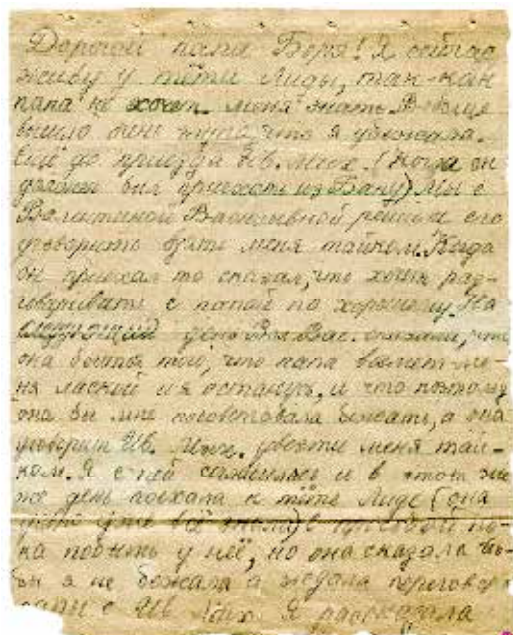 Дорогой папа Боря! Я сейчас
живу у тёти Лиды, так-как
папа не хочет меня знать. Вообще
вышло что я убежала.
Ещё до приезда Ив. Мих. (когда он
должен был приехать из Баку) мы с
Валентиной Васильевной решили его
уговорить взять меня тайком. Когда
он приехал то сказал, что хочет раз-
говаривать с папой по хорошему. На
следующий день Вал Вас. сказала, что
она боится того, что папа возьмет ме-
ня лаской и я останусь, и что поэтому
она бы мне посоветовала бежать, а она
уговорит Ив. Мих. увезти меня тай-
ком. Я с ней согласилась и в этот же
же день поехала к тёте Лиде (она
уже всё знала) с просьбой по-
ка побыть у неё, но она сказала что-
бы я не бежала а ждала переговор
с Ив Мих. Я рассказала